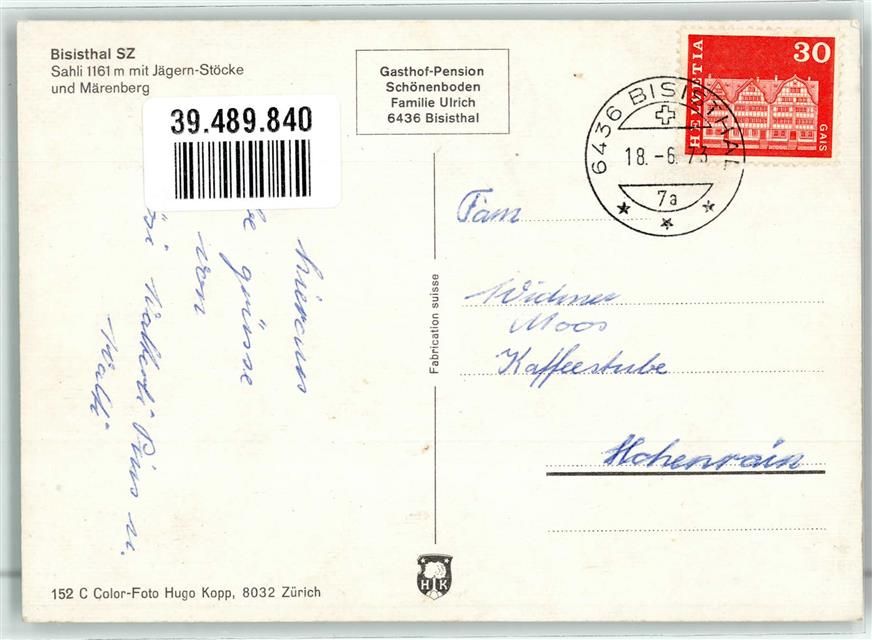 Bisisthal SZ
Sahli 1161 m mit Jägern-Stöcke
und Märenberg
39.489.840
Gasthof-Pension
Schönenboden
Familie Ulrich
6436 Bisisthal
HELVETIA
30
GAIS
6436 BISISTHAL
18.-6.73
7a
grüsse
von
Pius u.
Fam
Widmer
Moos
Kaffeestube
Hohenrain
Fabrication suisse
HK
152 C Color-Foto Hugo Kopp, 8032 Zürich